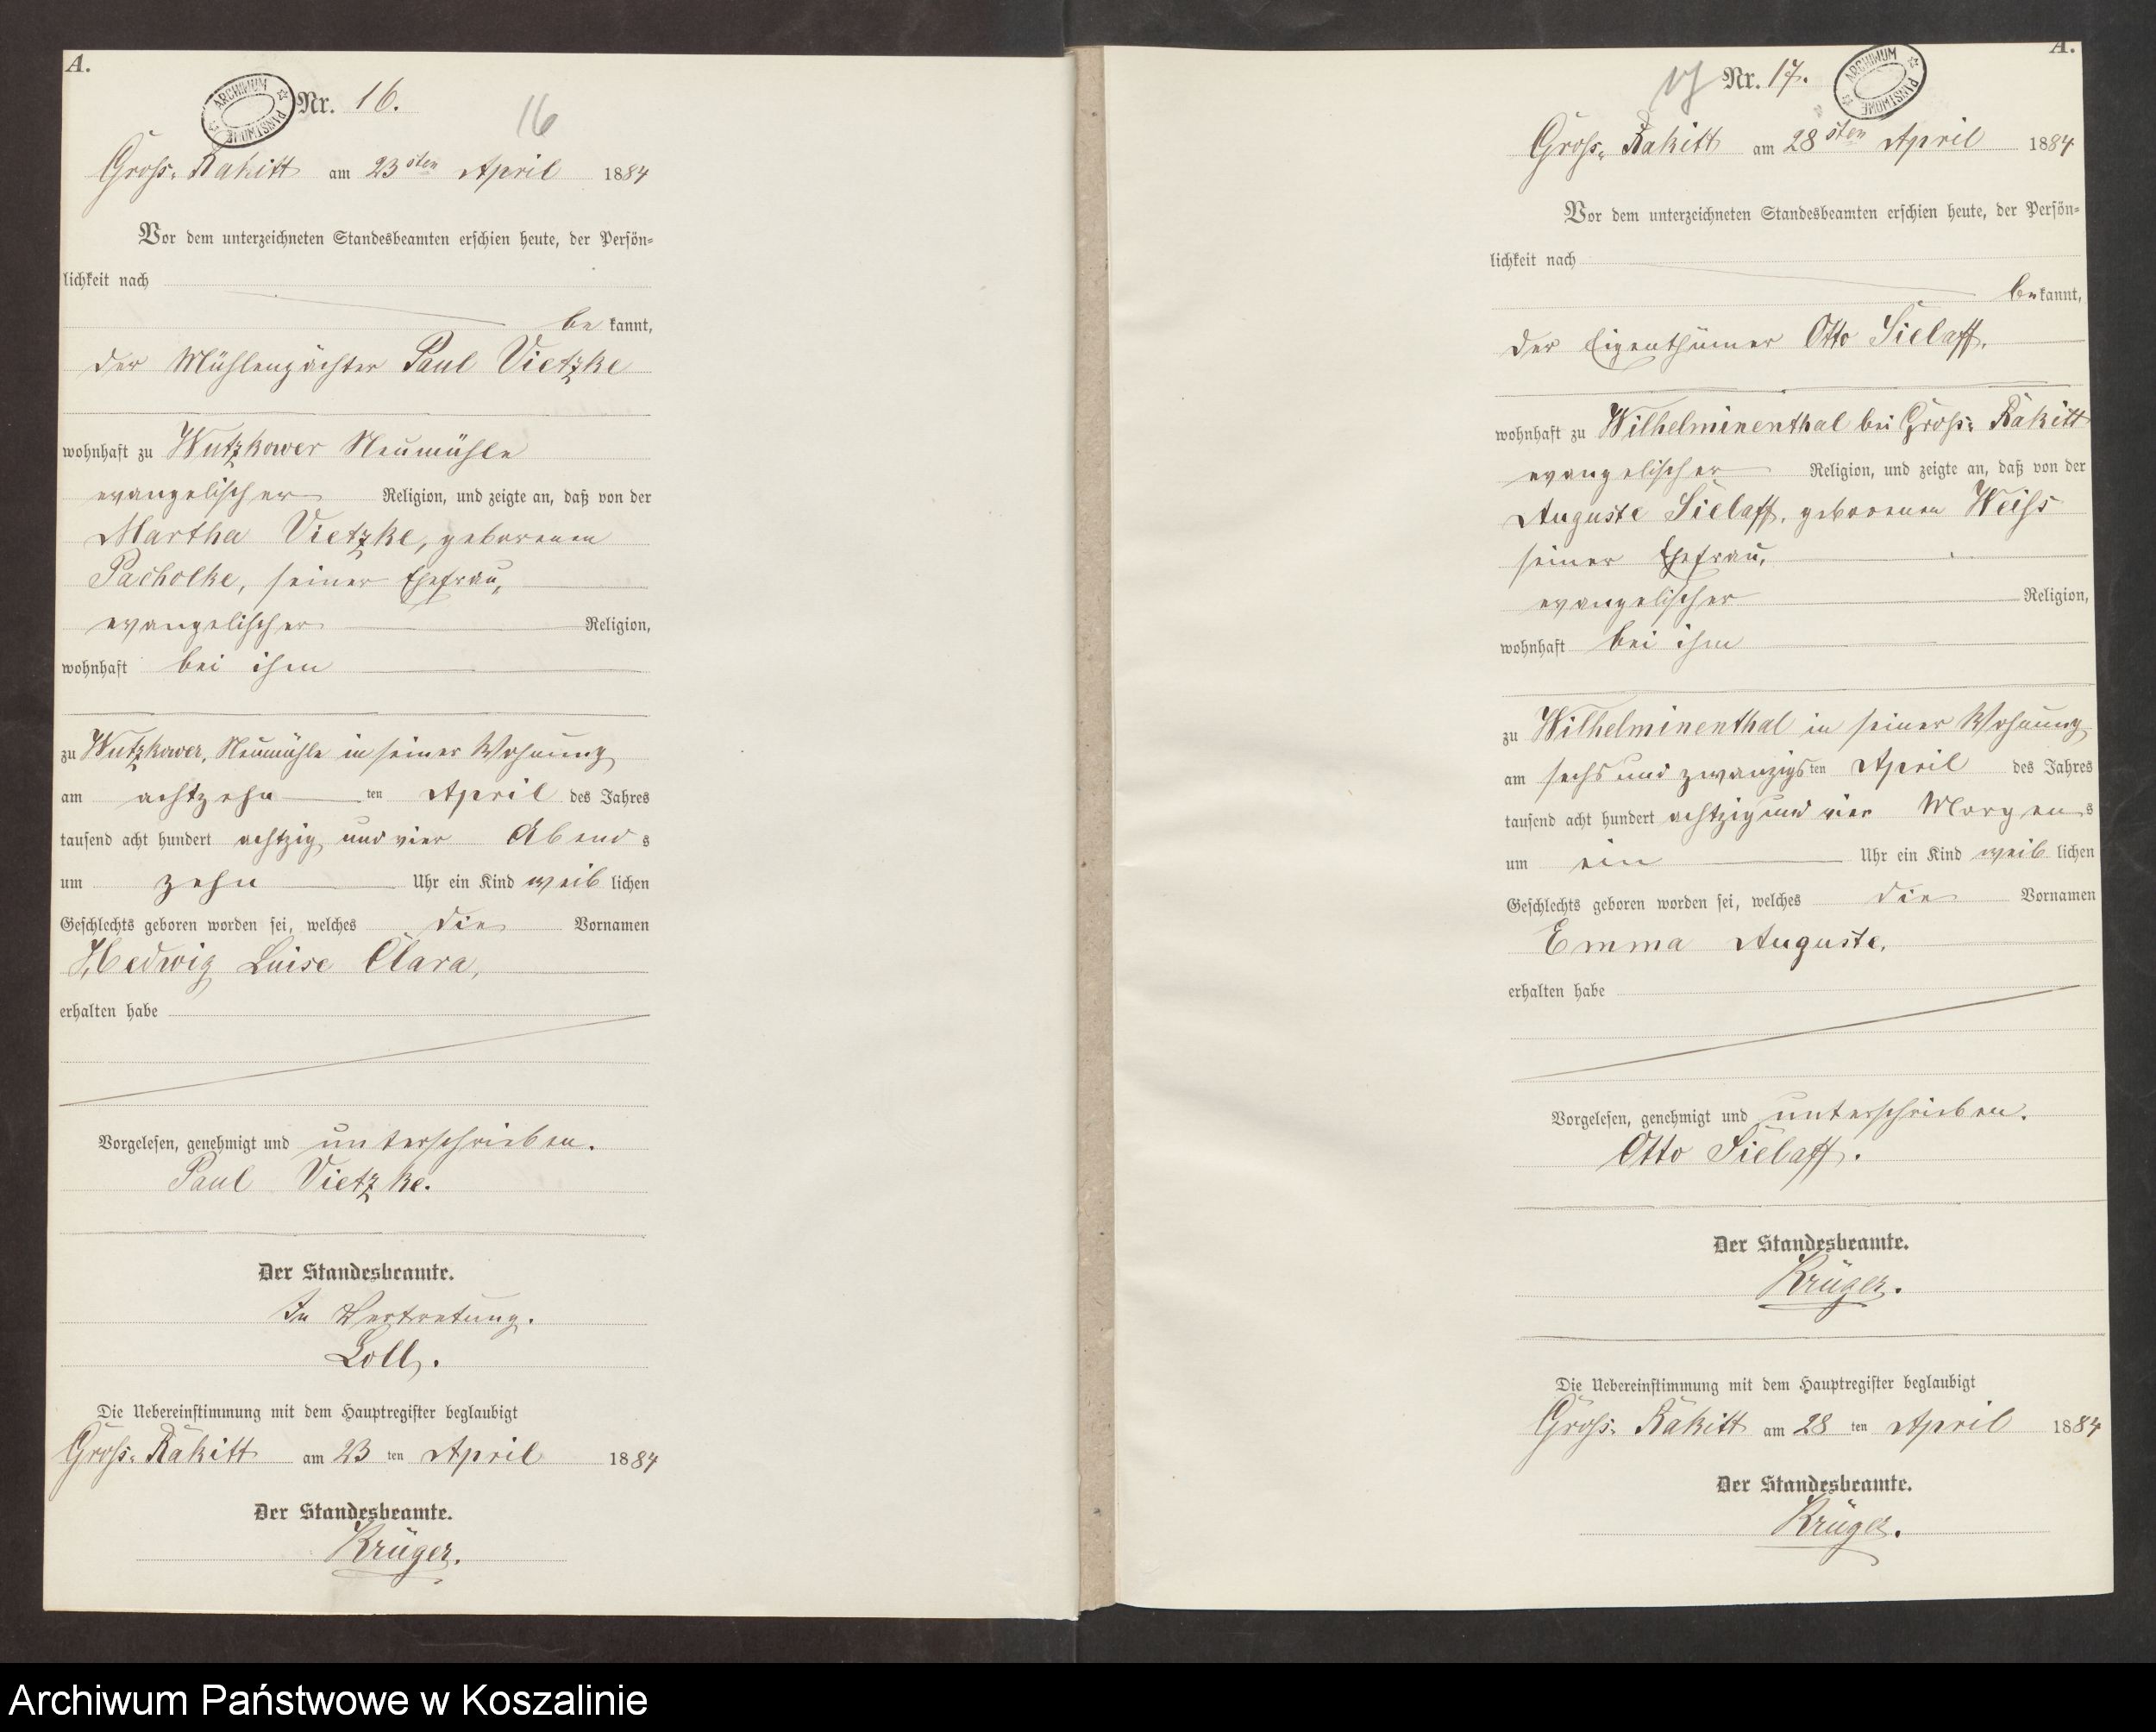 A.
ARCHIWUM PAŃSTWOWE
Nr. 16.
16
Gross-Rakitt am 23sten April 1884
Vor dem unterzeichneten Standesbeamten erschien heute, der Persön-
lichkeit nach
be kannt,
der Mühlenpächter Paul Vietzke
wohnhaft zu Wutzkower Neumühle
evangelischer Religion, und zeigte an, daß von der
Martha Vietzke, geborenen
Pacholke, seiner Ehefrau,
evangelischer Religion,
wohnhaft bei ihm
zu Wutzkower, Neumühle in seiner Wohnung
am achtzehn ten April des Jahres
tausend acht hundert achtzig und vier Abend s
um zehn Uhr ein Kind weib lichen
Geschlechts geboren worden sei, welches die Vornamen
Hedwig Luise Clara,
erhalten habe
Vorgelesen, genehmigt und unterschrieben.
Paul Vietzke.
Der Standesbeamte.
In Vertretung.
Loll.
Die Uebereinstimmung mit dem Hauptregister beglaubigt
Gross-Rakitt am 23 ten April 1884
Der Standesbeamte.
Krüger.
A.
17 Nr. 17.
ARCHIWUM PAŃSTWOWE
Gross-Rakitt am 28sten April 1884
Vor dem unterzeichneten Standesbeamten erschien heute, der Persön-
lichkeit nach
be kannt,
der Eigenthümer Otto Sielaff,
wohnhaft zu Wilhelminenthal bei Gross-Rakitt
evangelischer Religion, und zeigte an, daß von der
Auguste Sielaff, geborenen Weiss
seiner Ehefrau,
evangelischer Religion,
wohnhaft bei ihm
zu Wilhelminenthal in seiner Wohnung
am sechs und zwanzigs ten April des Jahres
tausend acht hundert achtzig und vier Morgen s
um ein Uhr ein Kind weib lichen
Geschlechts geboren worden sei, welches die Vornamen
Emma Auguste,
erhalten habe
Vorgelesen, genehmigt und unterschrieben.
Otto Sielaff.
Der Standesbeamte.
Krüger.
Die Uebereinstimmung mit dem Hauptregister beglaubigt
Gross-Rakitt am 28 ten April 1884
Der Standesbeamte.
Krüger.
Archiwum Państwowe w Koszalinie